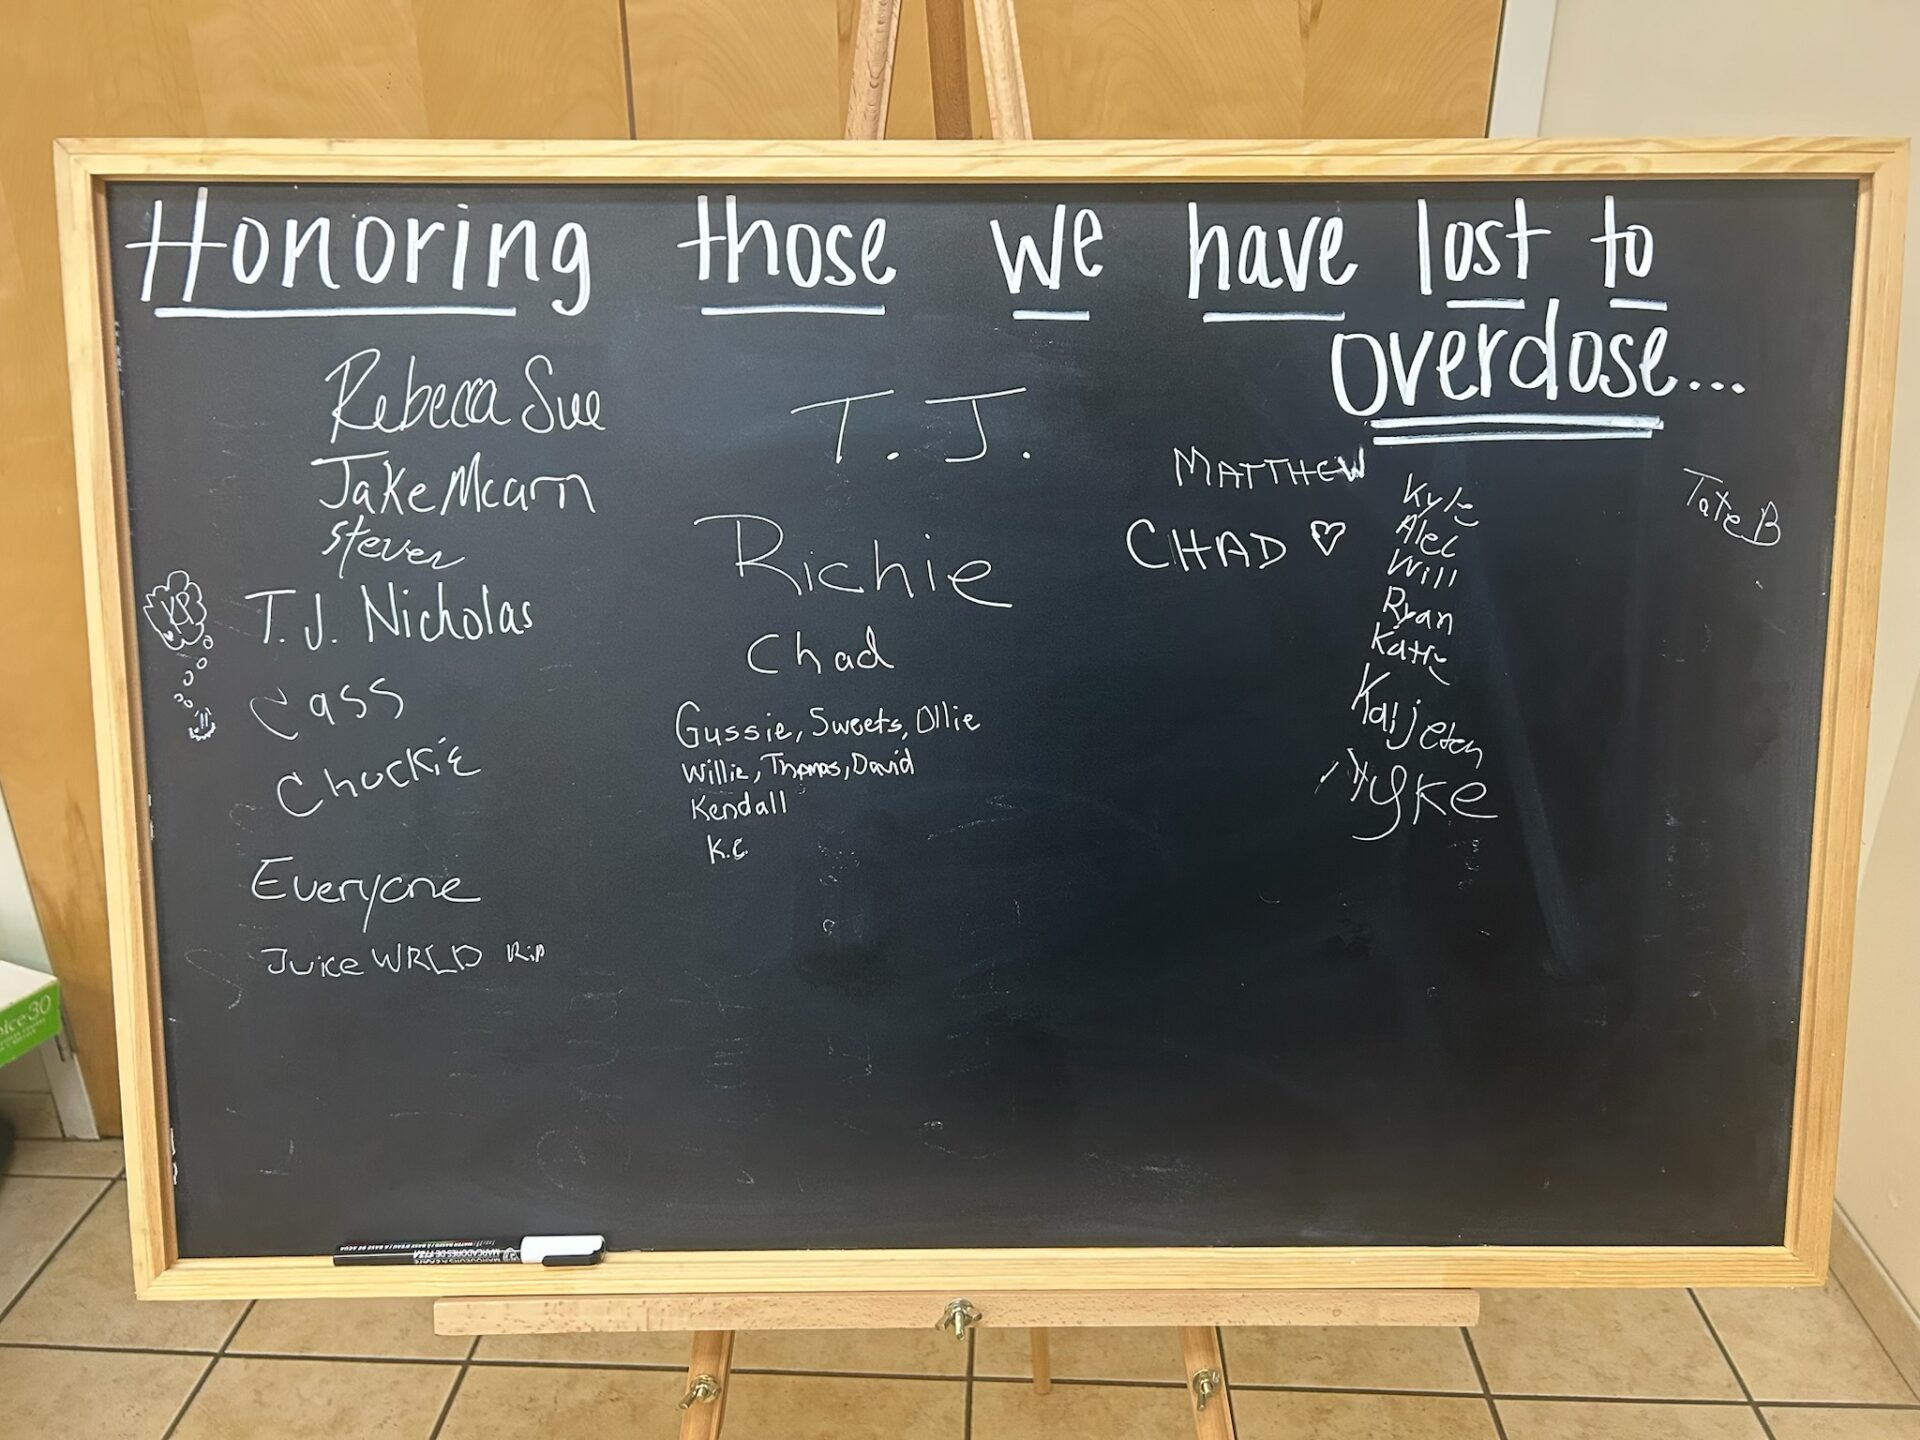 Honoring those we have lost to
overdose...
Rebecca Sue
Jake Mcarn
Steven
T.J. Nicholas
Cass
Chuckie
Everyone
Juice WRLD RiP
T. J.
Richie
Chad
Gussie, Sweets, Ollie
Willie, Thomas, David
Kendall
K.C.
MATTHEW
CHAD ♡
Kyle
Alec
Will
Ryan
Katie
Kaijeten
Tate B
MARCADORES DE TIZA